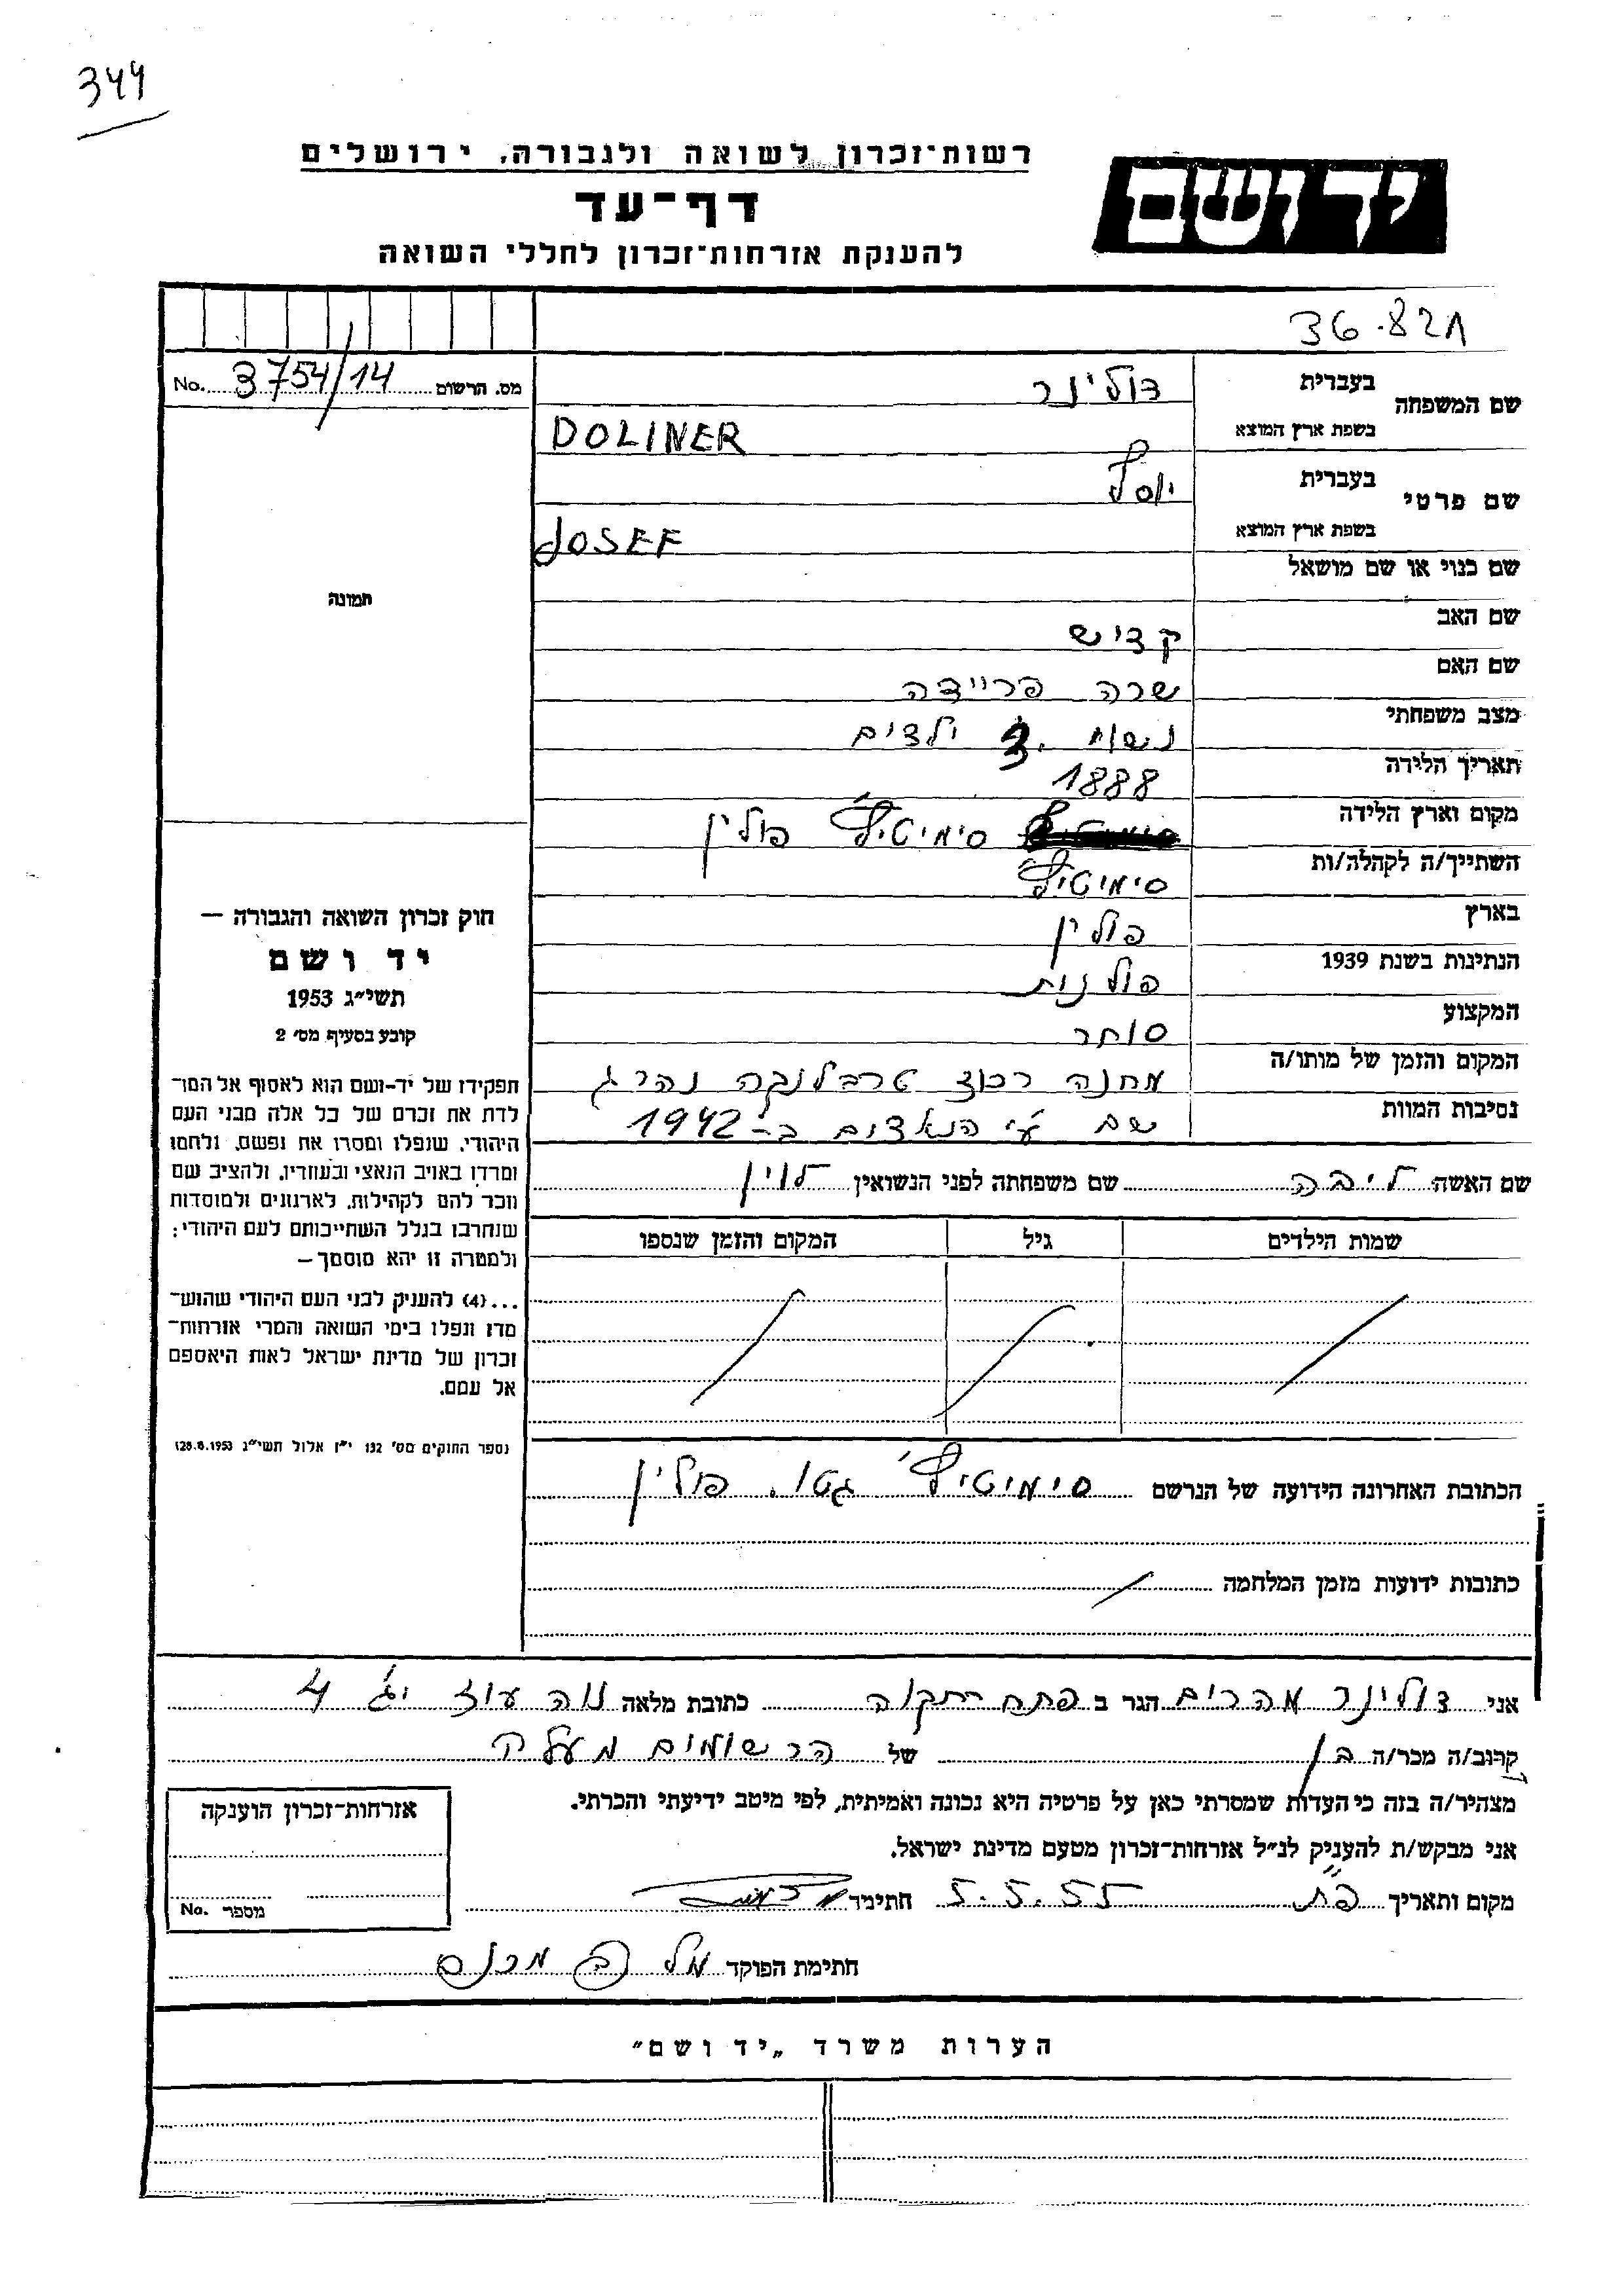 344
רשות־זכרון לשואה ולגבורה, ירושלים
יד ושם
דף־עד
להענקת אזרחות־זכרון לחללי השואה
36.82א
מס. הרשום 3754/14 No.
שם המשפחה בעברית דולינר
בשפת ארץ המוצא DOLINER
שם פרטי בעברית יוסף
בשפת ארץ המוצא JOSEF
שם כנוי או שם מושאל
שם האב קדיש
שם האם שרה פריידה
מצב משפחתי נשוי. 3 ילדים
תאריך הלידה 1888
מקום וארץ הלידה סימיטיץ' פולין
השתייך/ה לקהלה/ות סימיטיץ'
בארץ פולין
הנתינות בשנת 1939 פולנית
המקצוע סוחר
המקום והזמן של מותו/ה מחנה רכוז טרבלנבה נהרג
נסיבות המוות שם ע"י הנאצים ב־1942
שם האשה ליבה שם משפחתה לפני הנשואין לוין
שמות הילדים גיל המקום והזמן שנספו
הכתובת האחרונה הידועה של הנרשם סימיטיץ' גטו. פולין
כתובות ידועות מזמן המלחמה
תמונה
חוק זכרון השואה והגבורה –
יד ושם
תשי״ג 1953
קובע בסעיף מס׳ 2
תפקידו של יד־ושם הוא לאסוף אל המו־
לדת את זכרם של כל אלה מבני העם
היהודי, שנפלו ומסרו את נפשם, נלחמו
ומרדו באויב הנאצי ובעוזריו, ולהציב שם
וזכר להם לקהילות, לארגונים ולמוסדות
שנחרבו בגלל השתייכותם לעם היהודי;
ולמטרה זו יהא מוסמך –
...(4) להעניק לבני העם היהודי שהוש־
מדו ונפלו בימי השואה והמרי אזרחות־
זכרון של מדינת ישראל לאות היאספם
אל עמם.
(ספר החוקים מס׳ 132 י״ז אלול תשי״ג 28.8.1953)
אני דולינר אפרים הגר ב פתח תקוה כתובת מלאה נוה עוז יג' 4
קרוב/ה מכר/ה בן של הרשומים מעלה
מצהיר/ה בזה כי העדות שמסרתי כאן על פרטיה היא נכונה ואמיתית, לפי מיטב ידיעתי והכרתי.
אני מבקש/ת להעניק לנ״ל אזרחות־זכרון מטעם מדינת ישראל.
מקום ותאריך פ"ת 5.5.55 חתימה
חתימת הפוקד
אזרחות־זכרון הוענקה
מספר No.
הערות משרד „יד ושם״